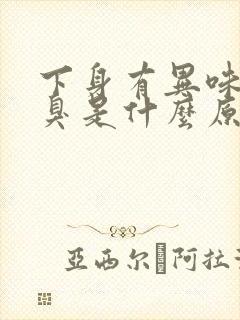 下身有異味
臭是什麼原
亞西尔 阿拉法